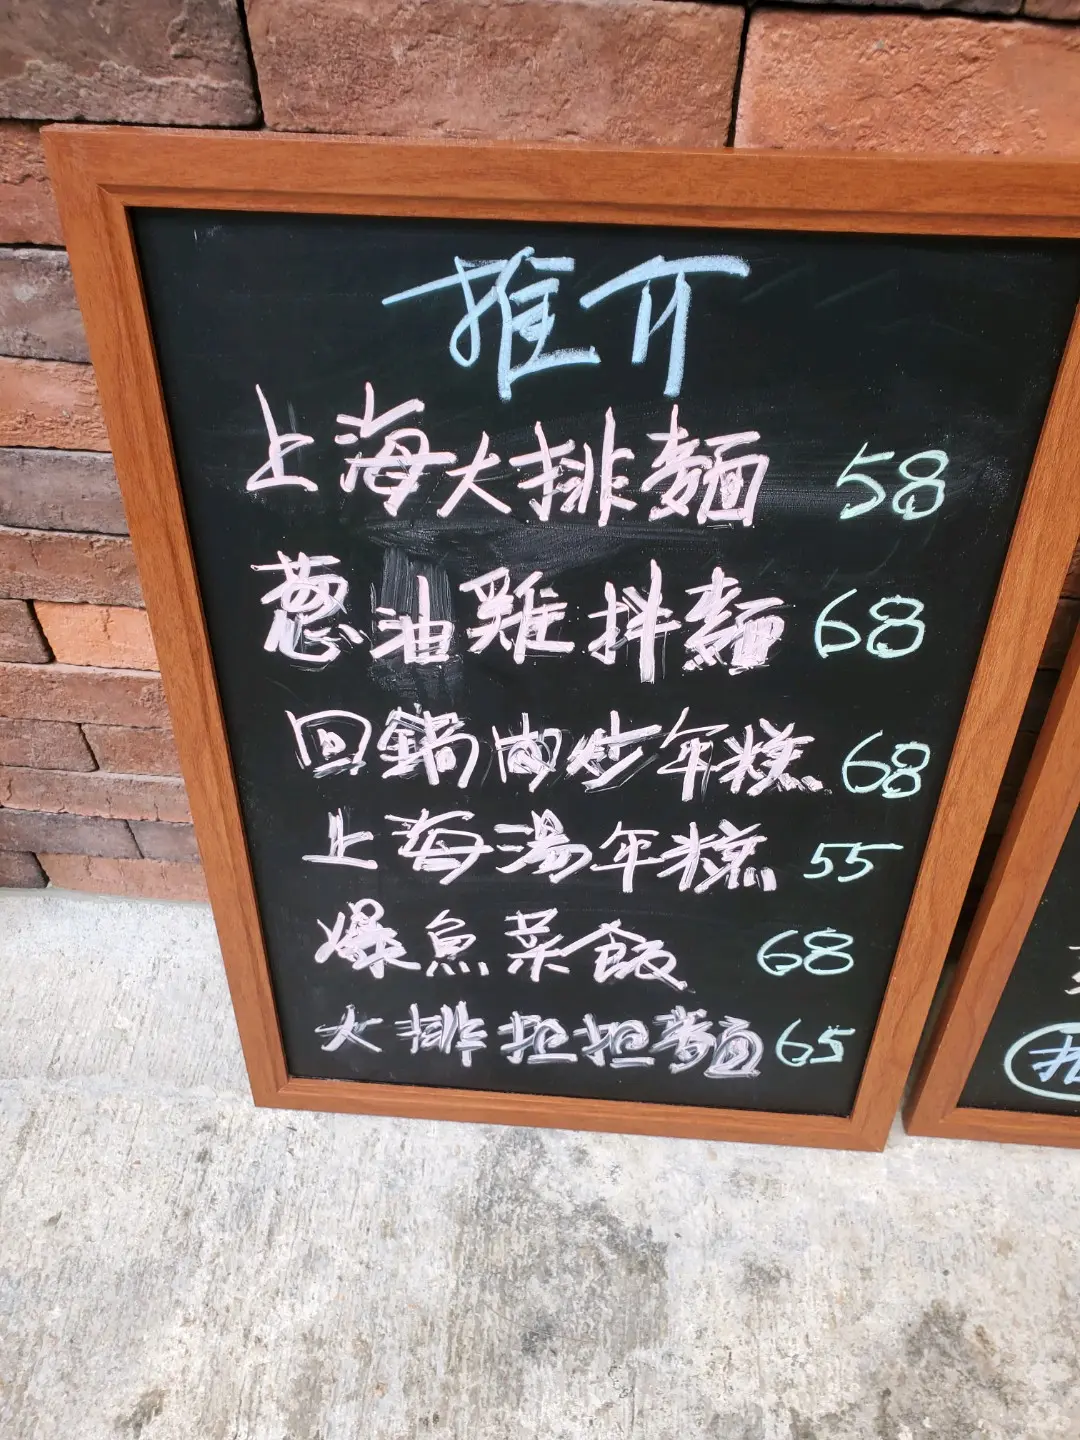 推介
上海大排麵 58
葱油雞拌麵 68
回鍋肉炒年糕 68
上海湯年糕 55
爆魚菜飯 68
大排担担麵 65